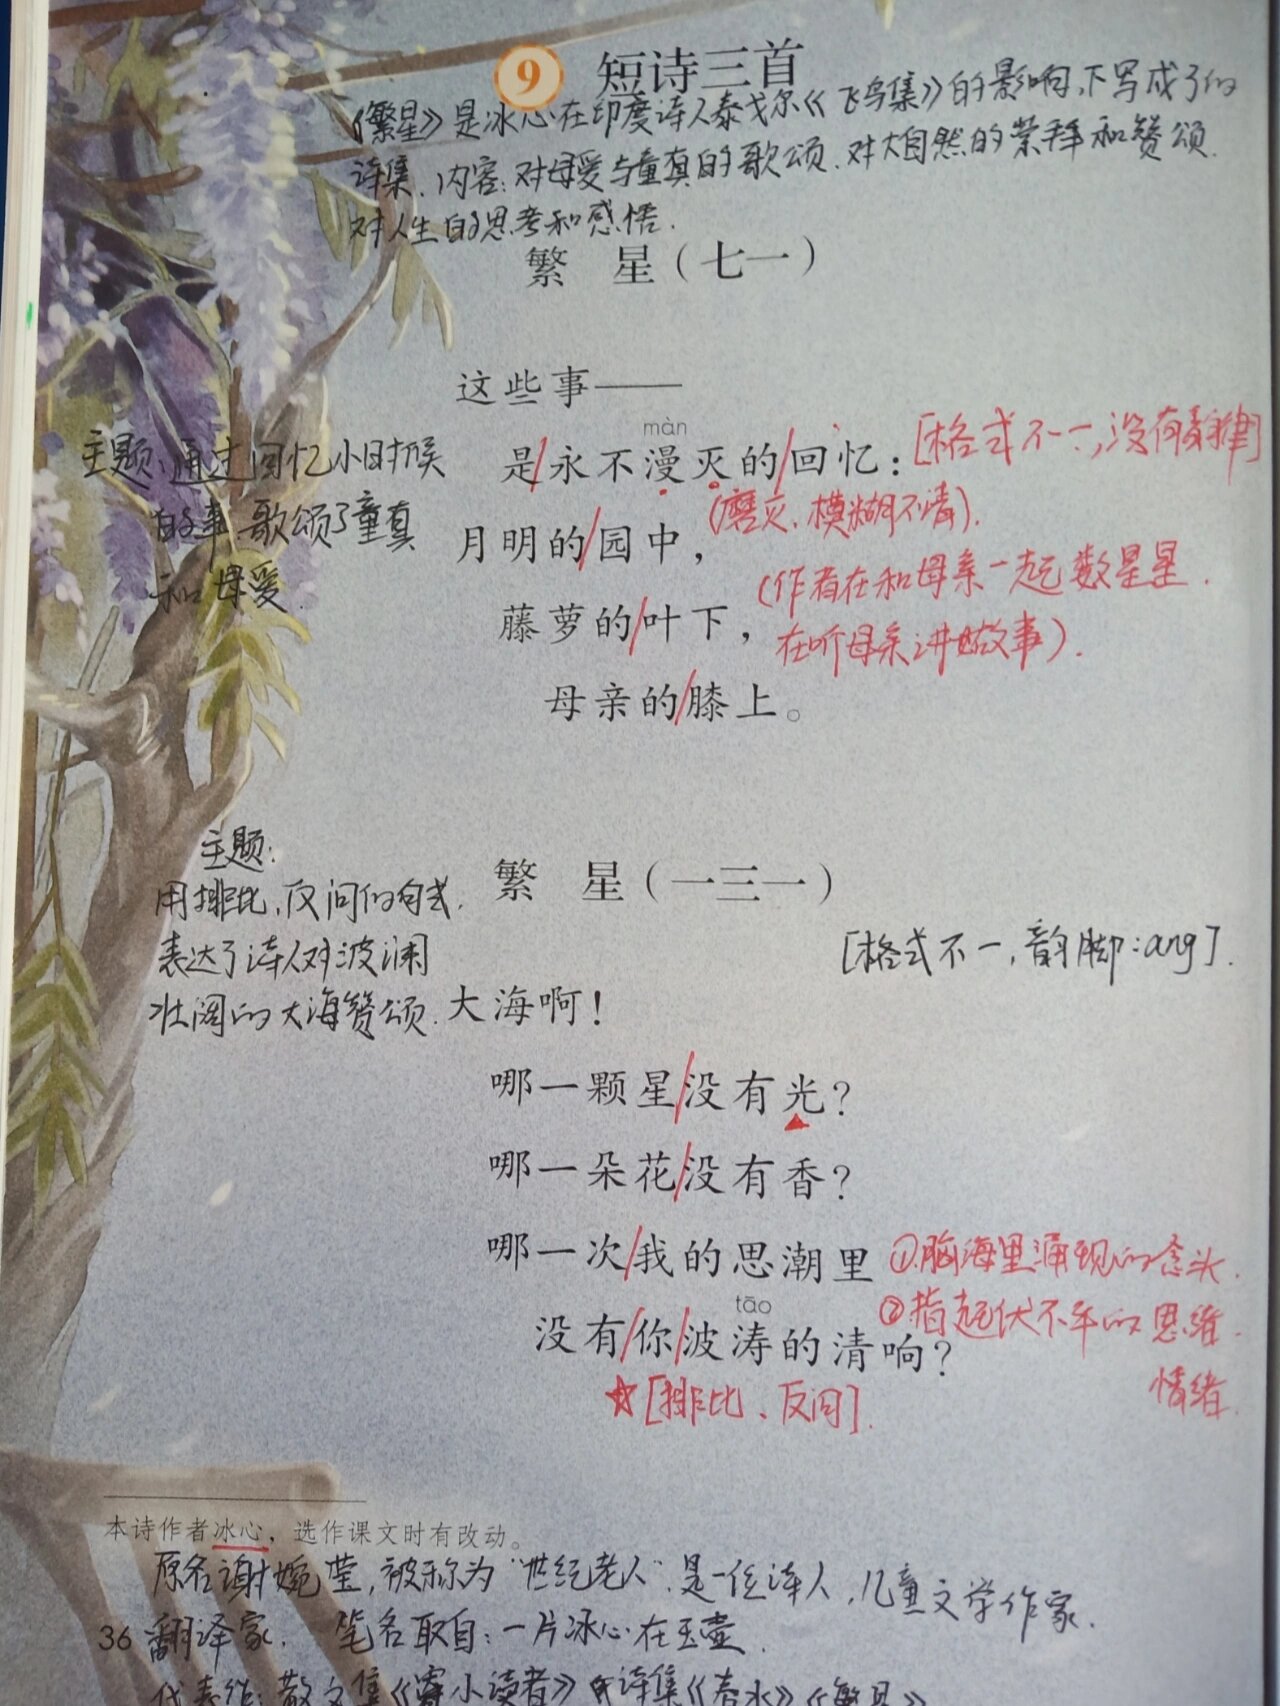 9 短诗三首
《繁星》是冰心在印度诗人泰戈尔《飞鸟集》的影响下写成了的
诗集.内容:对母爱与童真的歌颂.对大自然的崇拜和赞颂.
对人生的思考和感悟.
繁 星(七一)
这些事——
màn
是/永不漫灭的/回忆:
[格式不一,没有韵律]
(磨灭.模糊不清).
月明的/园中,
(作者在和母亲一起数星星.
在听母亲讲故事).
藤萝的/叶下,
母亲的/膝上。
主题:通过回忆小时候
的事.歌颂了童真
和母爱.
繁 星(一三一)
[格式不一,韵脚:ang].
主题:
用排比,反问的句式.
表达了诗人对波澜
壮阔的大海赞颂.
大海啊!
哪一颗星/没有光?
哪一朵花/没有香?
哪一次/我的思潮里
①脑海里涌现的念头.
②指起伏不平的思维.
情绪.
tāo
没有/你/波涛的清响?
☆[排比、反问].
本诗作者冰心,选作课文时有改动。
原名谢婉莹,被称为“世纪老人”.是一位诗人,儿童文学作家.
翻译家. 笔名取自:一片冰心在玉壶.
36
代表作:散文集《寄小读者》诗集《春水》《繁星》